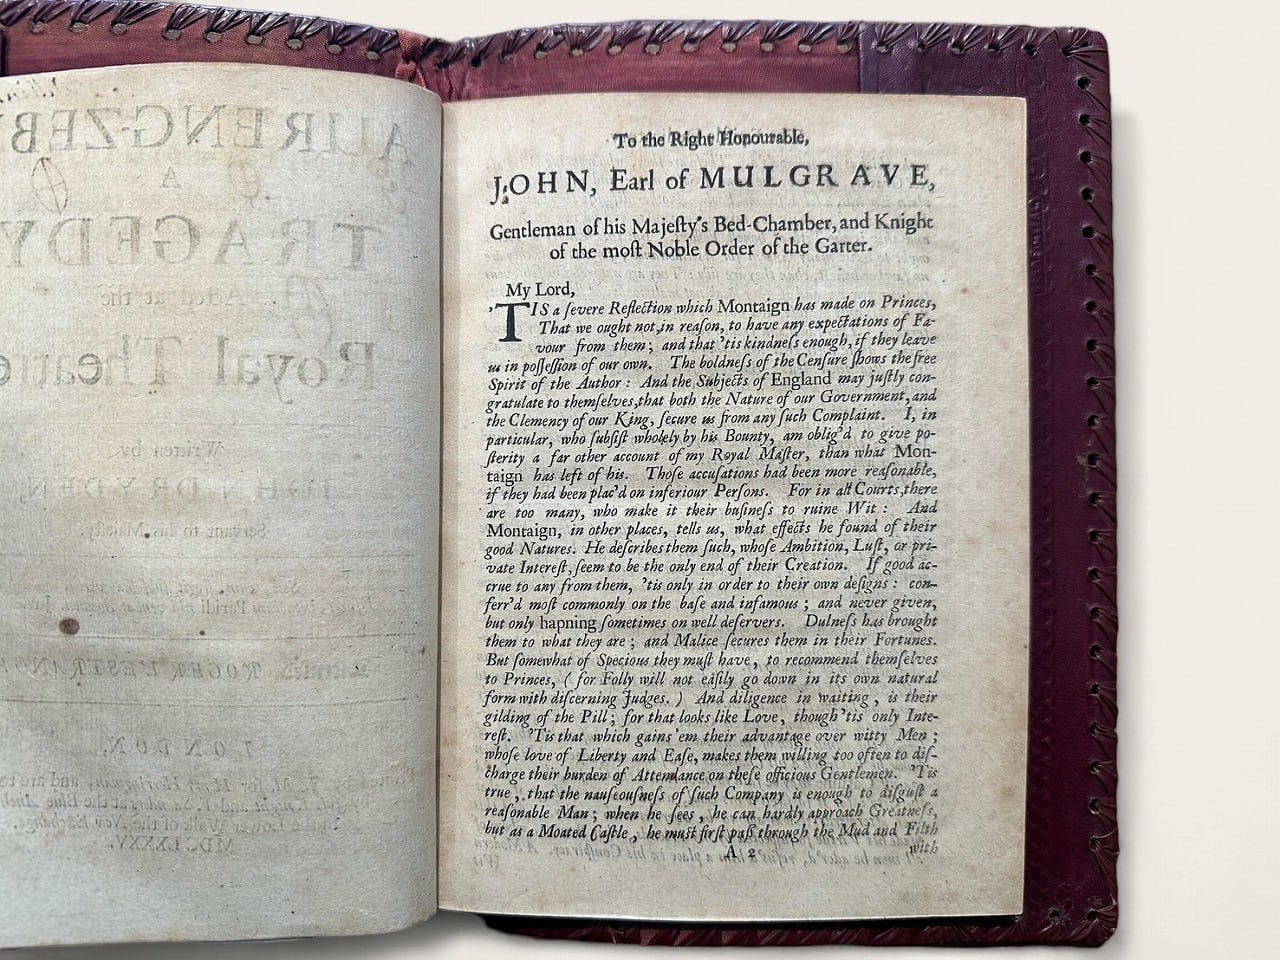 AURENG-ZEB
A
TRAGEDY
Acted at the
Royal Theat
Written by
DRYDEN,
Servant to his Majeſt
ROGER L'ESTRANGE
LONDON,
and are to
at the Blue Anch
Lower Walk of the New Exchange.
MDCLXXXV.
To the Right Honourable,
JOHN, Earl of MULGRAVE,
Gentleman of his Majeſty's Bed-Chamber, and Knight
of the moſt Noble Order of the Garter.
My Lord,
'TIS a ſevere Reflection which Montaign has made on Princes,
That we ought not, in reaſon, to have any expectations of Fa-
vour from them; and that 'tis kindneſs enough, if they leave
us in poſſeſſion of our own. The boldneſs of the Cenſure ſhows the free
Spirit of the Author: And the Subjects of England may juſtly con-
gratulate to themſelves, that both the Nature of our Government, and
the Clemency of our King, ſecure us from any ſuch Complaint. I, in
particular, who ſubſiſt wholely by his Bounty, am oblig'd to give po-
ſterity a far other account of my Royal Maſter, than what Mon-
taign has left of his. Thoſe accuſations had been more reaſonable,
if they had been plac'd on inferiour Perſons. For in all Courts, there
are too many, who make it their buſineſs to ruine Wit: And
Montaign, in other places, tells us, what effects he found of their
good Natures. He deſcribes them ſuch, whoſe Ambition, Luſt, or pri-
vate Intereſt, ſeem to be the only end of their Creation. If good ac-
crue to any from them, 'tis only in order to their own deſigns: con-
ferr'd moſt commonly on the baſe and infamous; and never given,
but only hapning ſometimes on well deſervers. Dulneſs has brought
them to what they are; and Malice ſecures them in their Fortunes.
But ſomewhat of Specious they muſt have, to recommend themſelves
to Princes, (for Folly will not eaſily go down in its own natural
form with diſcerning Judges.) And diligence in waiting, is their
gilding of the Pill; for that looks like Love, though 'tis only Inte-
reſt. 'Tis that which gains 'em their advantage over witty Men;
whoſe love of Liberty and Eaſe, makes them willing too often to diſ-
charge their burden of Attendance on theſe officious Gentlemen. 'Tis
true, that the nauſeouſneſs of ſuch Company is enough to diſguſt a
reaſonable Man; when he ſees, he can hardly approach Greatneſs,
but as a Moated Caſtle, he muſt firſt paſs through the Mud and Filth
A 2
with